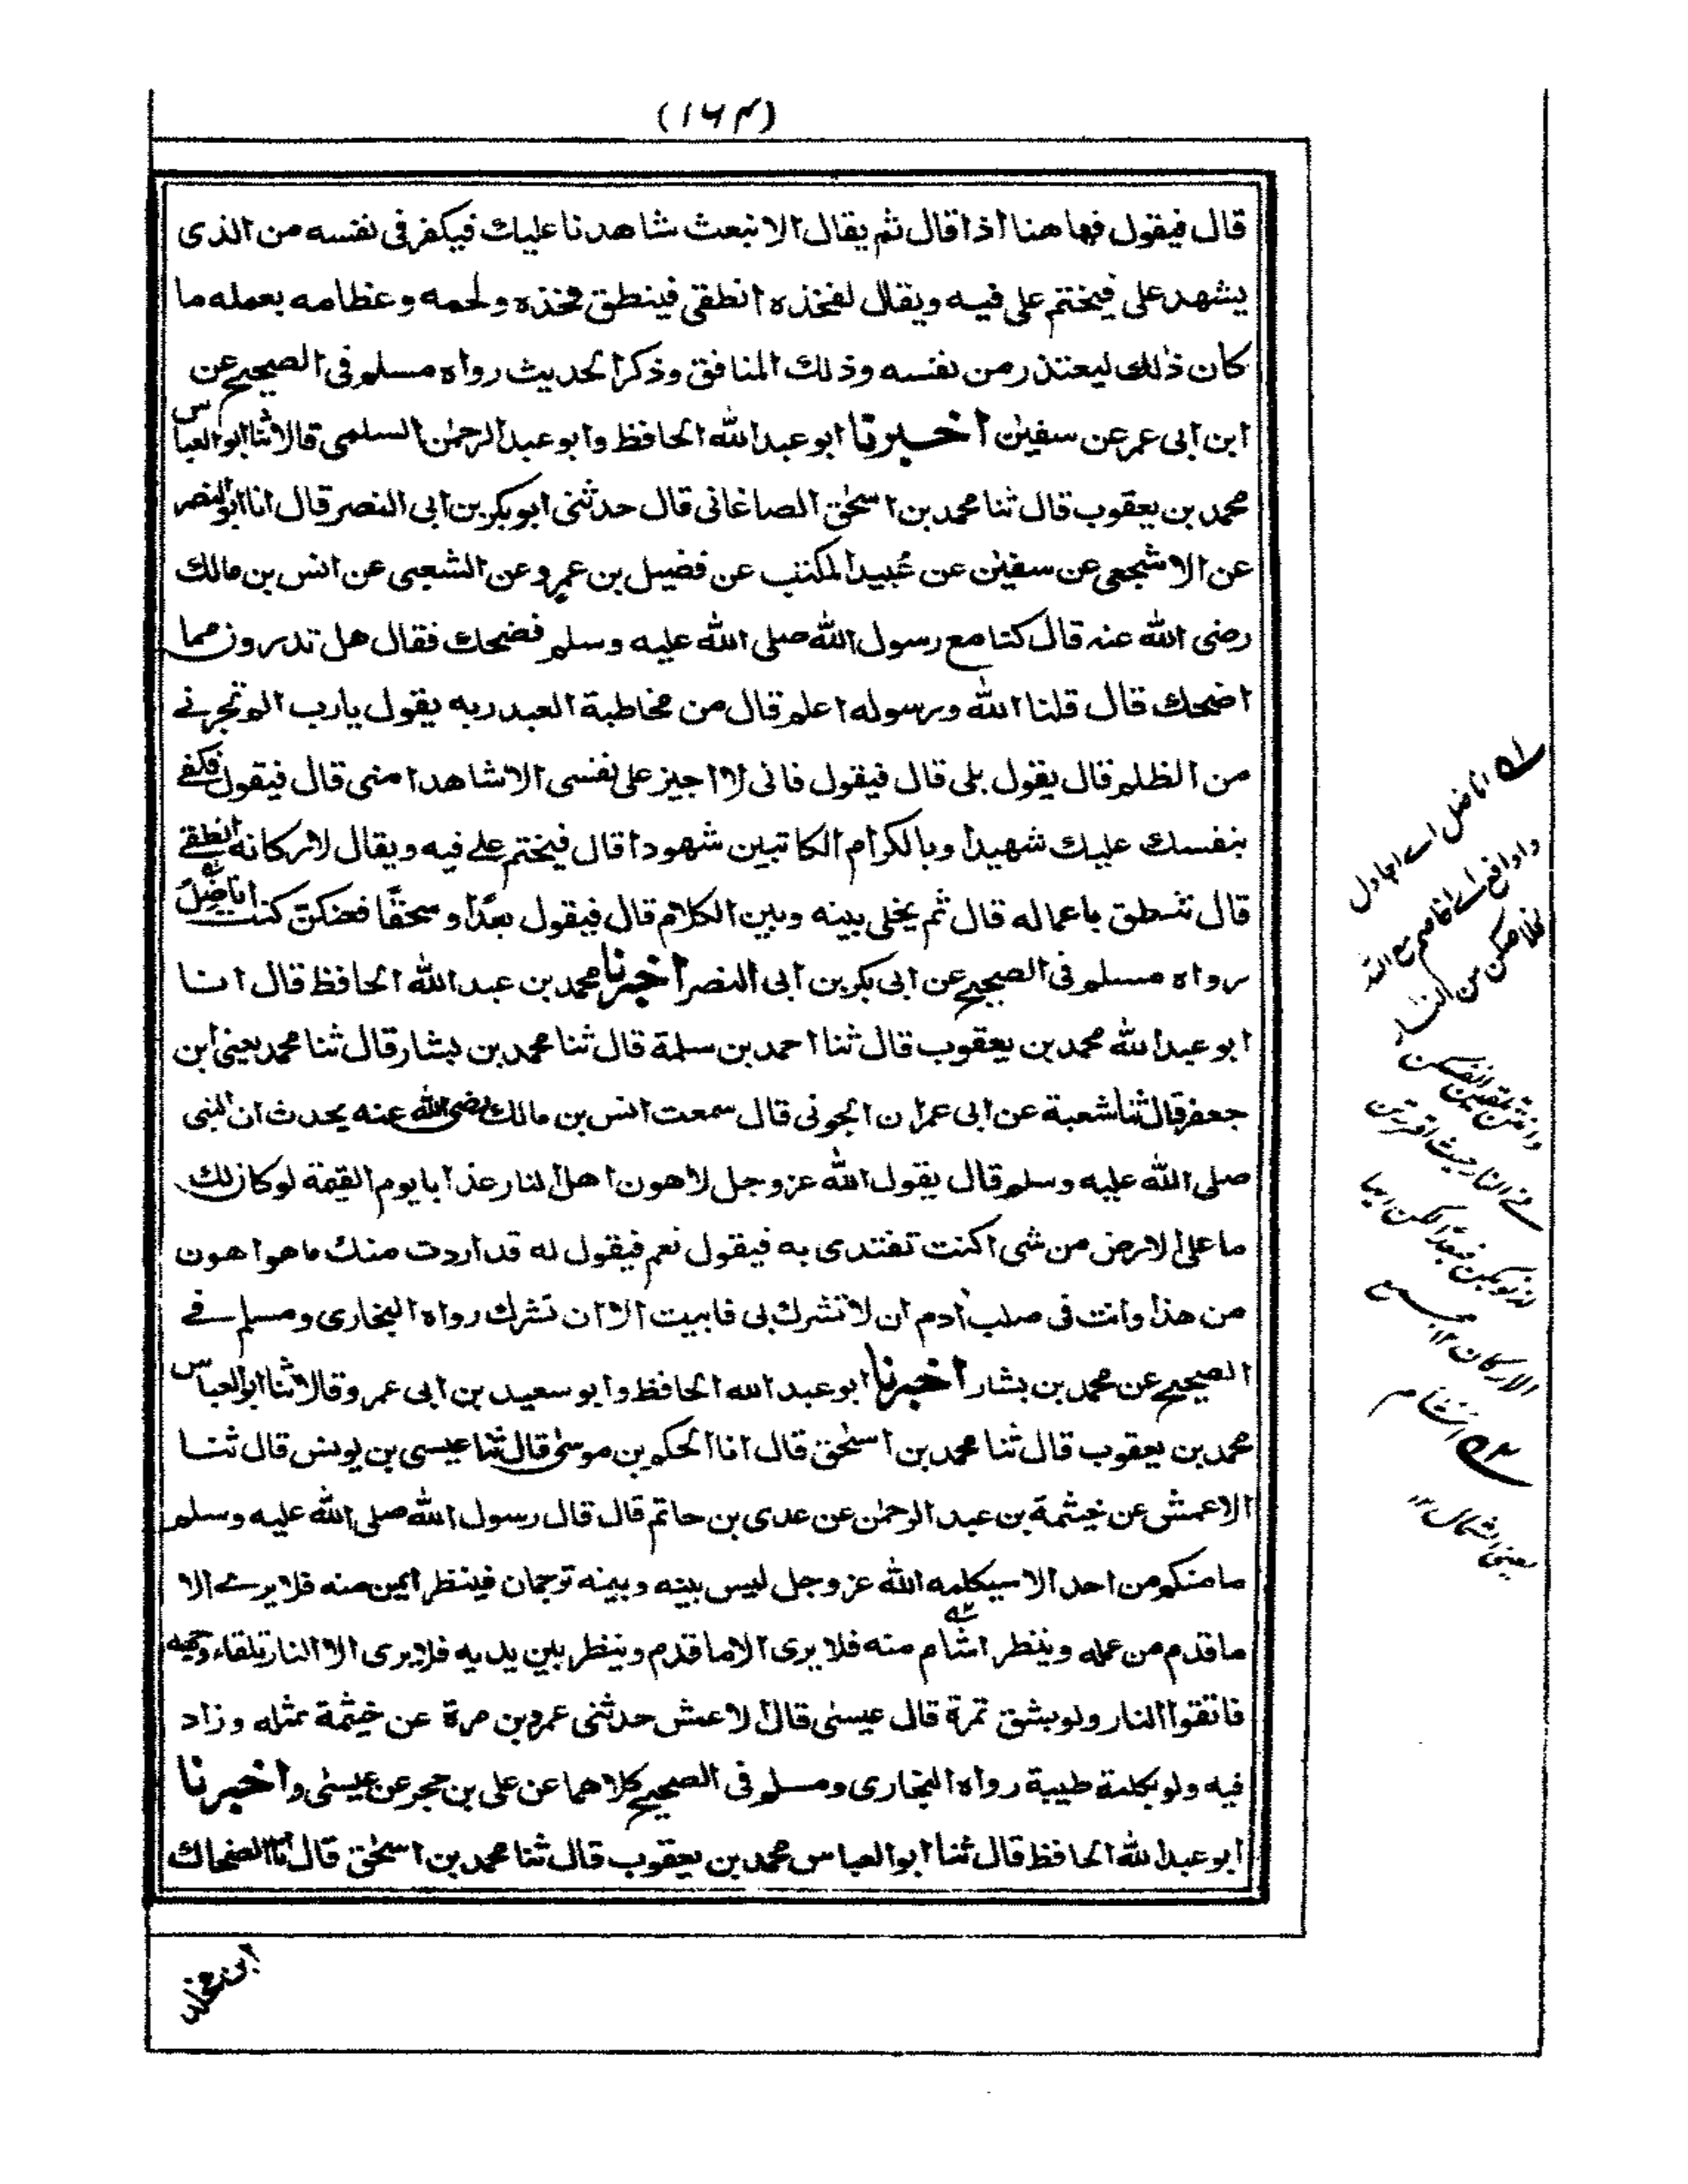 (۱۶۴)
قال فيقول فها هنا اذا قال ثم يقال الا نبعث شاهدنا عليك فيكفر فى نفسه من الذى
يشهد على فيختم على فيه ويقال لفخذه انطقى فينطق فخذه ولحمه وعظامه بعمله ما
كان ذلك ليعتذر من نفسه وذلك المنافق وذكر الحديث رواه مسلم فى الصحيح عن
ابن ابى عمر عن سفين اخبرنا ابو عبد الله الحافظ وابو عبد الرحمن السلمى قالا ثنا ابو العباس
محمد بن يعقوب قال ثنا محمد بن اسحق الصاغانى قال حدثنى ابو بكر بن ابى النصر قال انا ابو النضر
عن الاشجعى عن سفين عن عُبيد المكتب عن فضيل بن عمرو عن الشعبى عن انس بن مالك
رضى الله عنه قال كنا مع رسول الله صلى الله عليه وسلم فضحك فقال هل تدرون مما
اضحك قال قلنا الله ورسوله اعلم قال من مخاطبة العبد ربه يقول يارب الم تجرنے
من الظلم قال يقول بلى قال فيقول فانى لا اجيز على نفسى الا شاهدا منى قال فيقول فكفے
بنفسك عليك شهيدا وبالكرام الكاتبين شهودا قال فيختم علے فيه ويقال لاركانه انطقے
قال تنطق باعماله قال ثم يخلى بينه وبين الكلام قال فيقول بعدًا وسحقًا فعنكن كنت اناضل
رواه مسلم فى الصحيح عن ابى بكر بن ابى النضر اخبرنا محمد بن عبد الله الحافظ قال انا
ابو عبد الله محمد بن يعقوب قال ثنا احمد بن سلمة قال ثنا محمد بن بشار قال ثنا محمد يعنى ابن
جعفر قال ثنا شعبة عن ابى عمران الجونى قال سمعت انس بن مالك رضى الله عنه يحدث ان النبى
صلى الله عليه وسلم قال يقول الله عز وجل لاهون اهل النار عذابا يوم القيمة لو كان لك
ما على الارض من شى اكنت تفتدى به فيقول نعم فيقول له قد اردت منك ما هو اهون
من هذا وانت فى صلب أدم ان لا تشرك بى فابيت الا ان تشرك رواه البخارى ومسلم فے
الصحيح عن محمد بن بشار اخبرنا ابو عبد الله الحافظ وابو سعيد بن ابى عمرو قالا ثنا ابو العباس
محمد بن يعقوب قال ثنا محمد بن اسحق قال انا الحكم بن موسى قال ثنا عيسى بن يونس قال ثنا
الاعمش عن خيثمة بن عبد الرحمن عن عدى بن حاتم قال قال رسول الله صلى الله عليه وسلم
ما منكم من احد الا سيكلمه الله عز وجل ليس بينه وبينه ترجمان فينظر ايمن منه فلا يرے الا
ما قدم من عمله وينظر اشام منه فلا يرى الا ما قدم وينظر بين يديه فلا يرى الا النار تلقاء وجهه
فاتقوا النار ولو بشق تمرة قال عيسى قال الاعمش حدثنى عمرو بن مرة عن خيثمة بمثله وزاد
فيه ولو بكلمة طيبة رواه البخارى ومسلم فى الصحيح كلاهما عن على بن حجر عن عيسى واخبرنا
ابو عبد الله الحافظ قال ثنا ابو العباس محمد بن يعقوب قال ثنا محمد بن اسحق قال انا الضحاك
ابن مخلد
لـه اناضل اے اجادل
وادافع اے اخاصم مع الله
لخلاصكن من النار
وانتن تلقين انفسكن
فے النار حيث اقررتن
الاركان ۱۲
الاشام
يعنى الشمال ۱۲